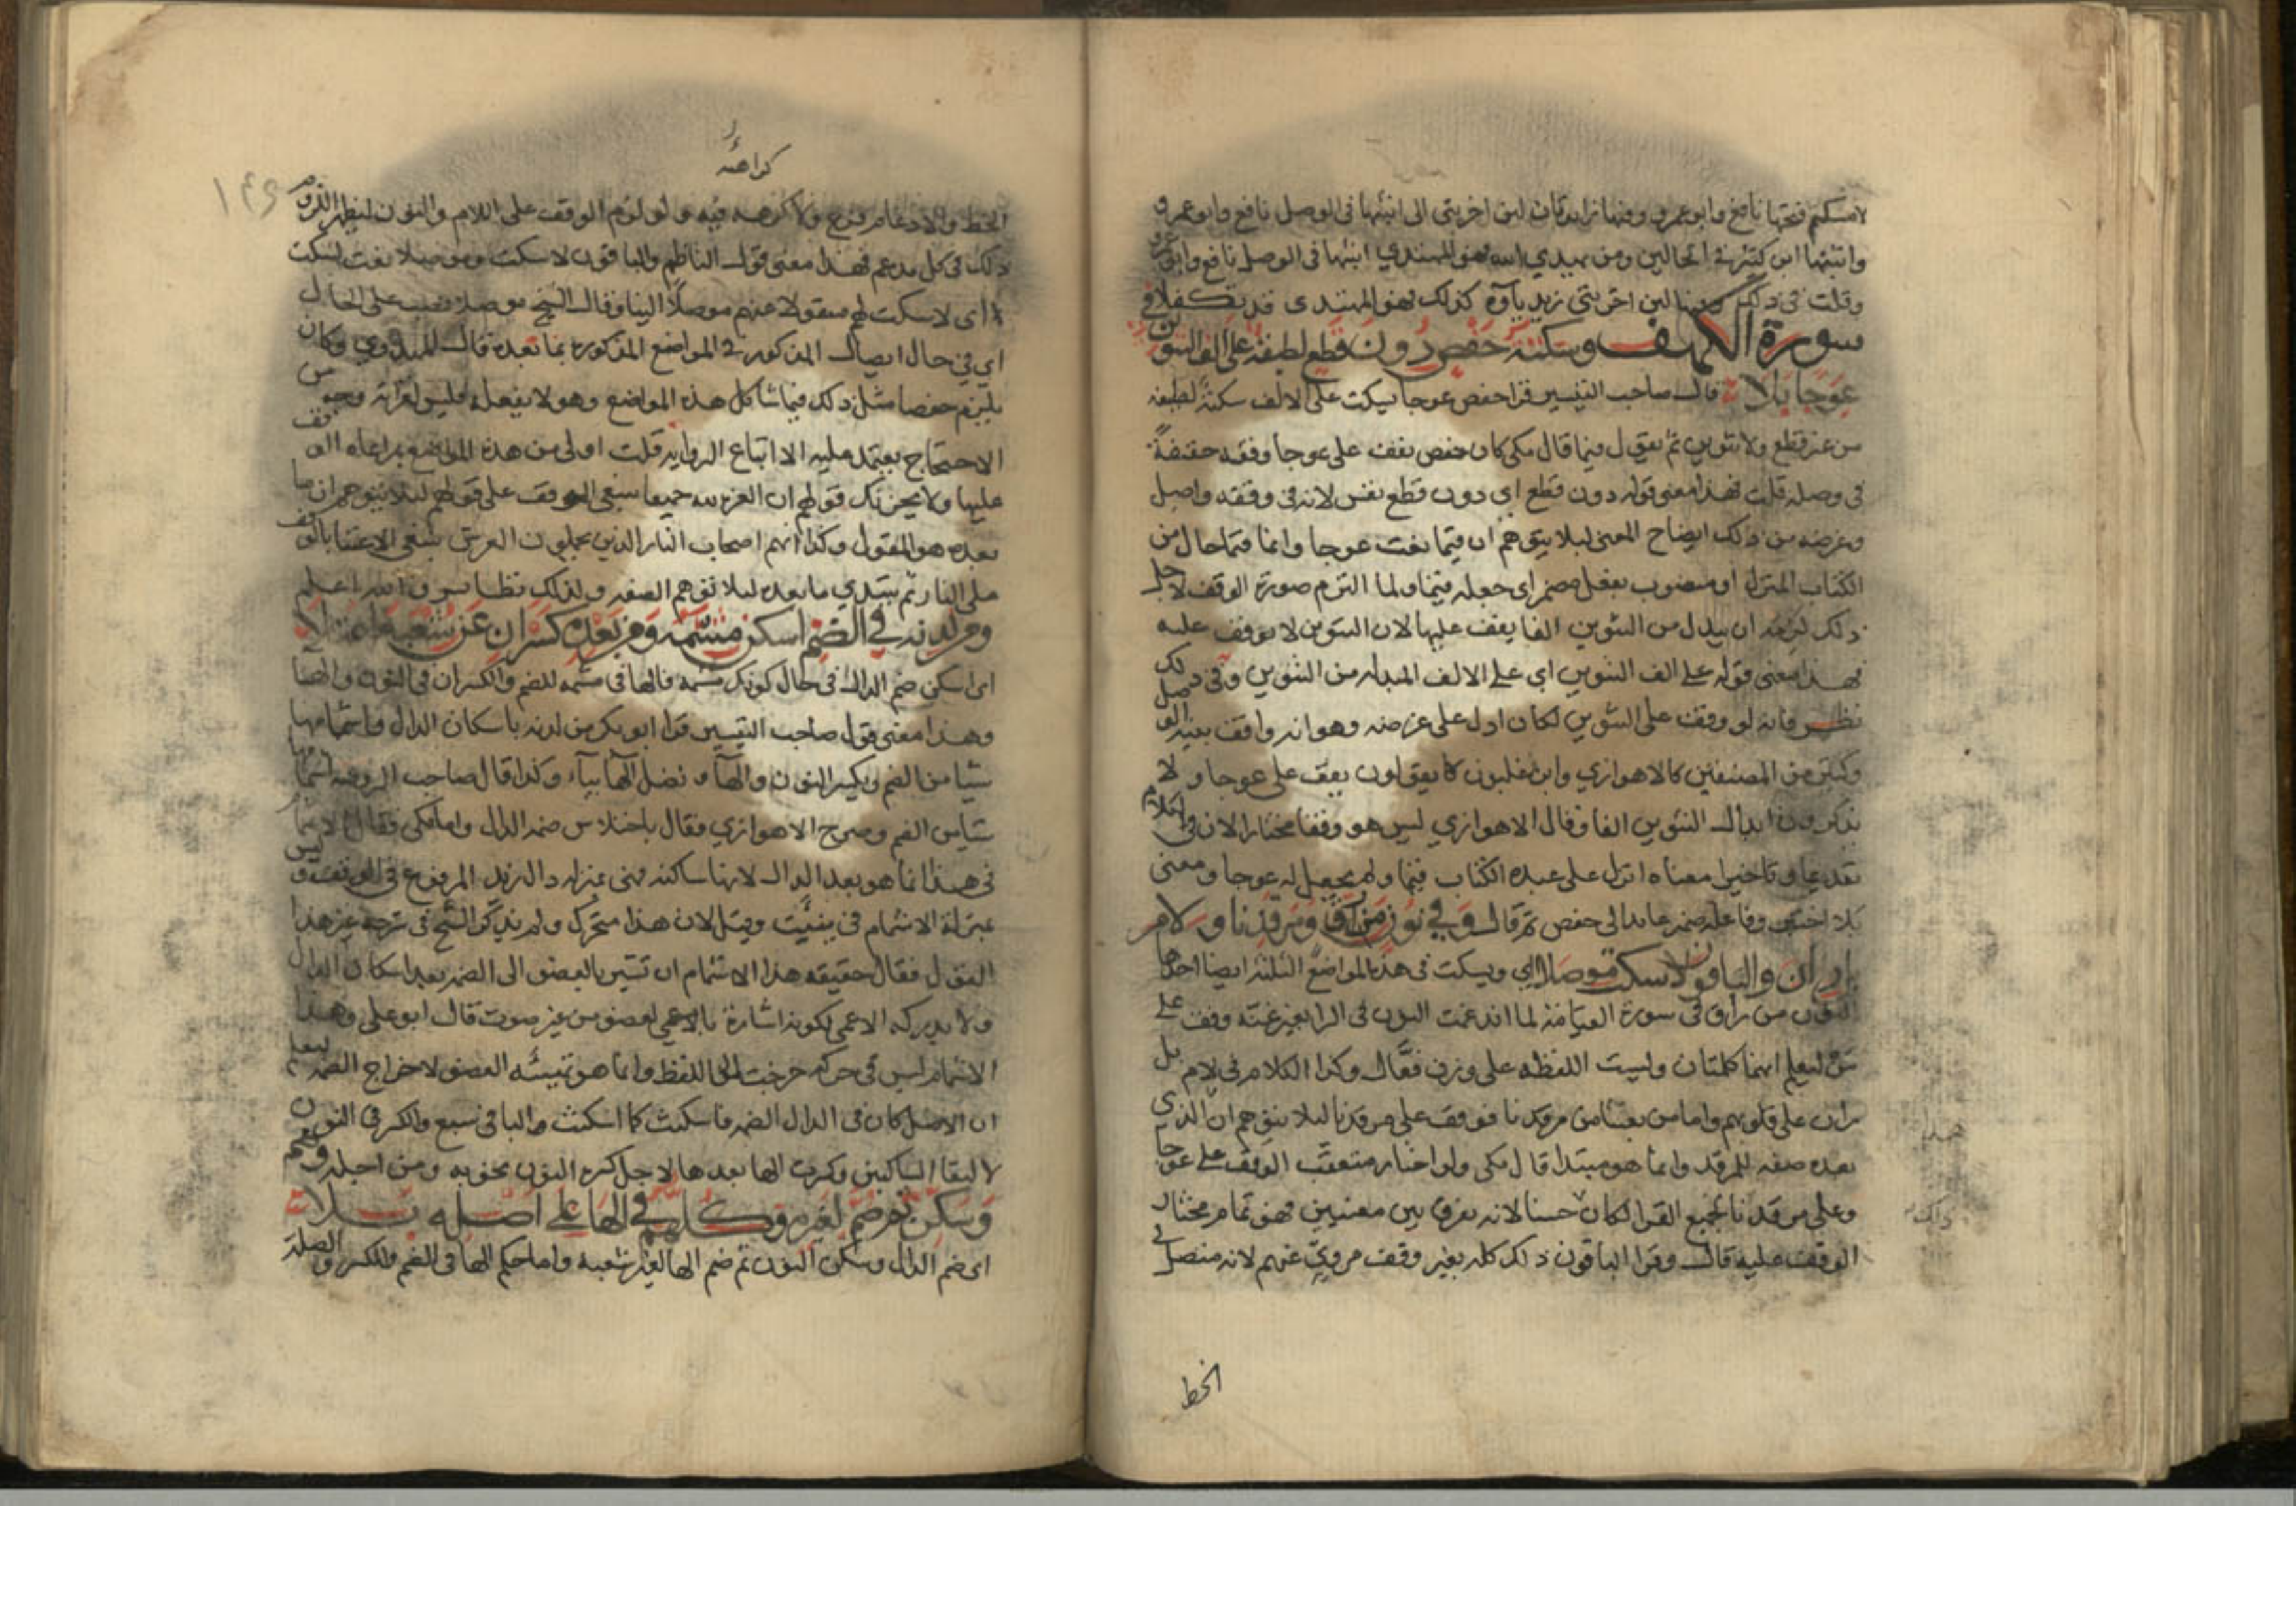 لامسكتم فتحها نافع وابو عمرو وفيها زايدتان لين اخرتني الى اثبتها في الوصل نافع وابو عمرو
واثبتها ابن كثير في الحالين ومن يهدي الله فهو المهتدي اثبتها في الوصل نافع وابو عمرو
وقلت في ذلك لين اخرتني زيد ياؤه كذلك فهو المهتدى قد تكفلا في
سورة الكهف وسكتة حفص دون قطع لطيفة على الف التنوين
عوجا بلا قال صاحب التيسير قرا حفص عوجا يسكت على الالف سكتة لطيفة
من غير قطع ولا تنوين ثم يقول قيما قال مكي كان حفص يقف على عوجا وقفه خفيفة
في وصله قلت فهذا معنى قوله دون قطع اي دون قطع نفس لانه في وقفه واصل
وغرضه من ذلك ايضاح المعنى ليلا يتوهم ان قيما نعت عوجا وانما قيما حال من
الكتاب المنزل او منصوب بفعل مضمر اي جعله قيما ولما التزم صورة الوقف لاجل
ذلك لزمه ان يبدل من التنوين الفا يقف عليها لان التنوين لا يوقف عليه
فهذا معنى قوله على الف التنوين اي على الالف المبدله من التنوين وفي ذلك
نظر فانه لو وقف على التنوين لكان ادل على غرضه وهو انه واقف بنية الوصل
وكثير من المصنفين كالاهوازي وابن غلبون كا يقولون يقف على عوجا ولا
يذكرون ابدال التنوين الفا وقال الاهوازي ليس هو وقفا مختارا لان في الكلام
تقديما وتاخيرا معناه انزل على عبده الكتاب قيما ولم يجعل له عوجا ومعنى
بلا اختبر وفاعله ضمير عايد الى حفص ثم قال وفي نون من راق ومرقدنا ولام
بل ران والباقون لا سكت موصلا اي ويسكت في هذه المواضع الثلثة ايضا احدها
النون من راق في سورة القيامة لما اندغمت النون في الرا بغير غنه وقف على
من ليعلم انهما كلمتان وليست اللفظه على وزن فعّال وكذا الكلام في لام بل
ران على قلوبهم واما من بعثنا من مرقدنا فوقف على مرقدنا ليلا يتوهم ان الذي
بعده صفه للمرقد وانما هو مبتدا قال مكي ولو اختار متعقب الوقف على عوجا
وعلى مرقدنا لجميع القرا لكان حسنا لانه يفرق بين معنيين فهو تمام مختار
الوقف عليه قال وقرا الباقون ذلك كله بغير وقف مرويّ عنهم لانه متصل في
هذا
ذلك
الخط
كراهة
١٤٩
الخط والادغام فرع ولا كرهه فيه ولو لزم الوقف على اللام والنون ليظهر اللزوم
ذلك في كل مدغم فهذا معنى قول الناظم والباقون لا سكت وموصلا نعت لسكت
اي لا سكت لهم منقولا عنهم موصلا الينا وقال الشيخ موصلا نصب على الحال
اي في حال ايصال المذكور في المواضع المذكورة بما بعده قال المهدوي وكان
يلزم حفصا مثل ذلك فيما شاكل هذه المواضع وهو لا يفعله فليس لقراته وجه من
الاحتجاج يعتمد عليه الا اتباع الرواية قلت اولى من هذه المواضع بمراعاه الوقف
عليها ولا يحزنك قولهم ان العزة لله جميعا ينبغي الوقف على قولهم ليلا يتوهم ان ما
بعده هو المقول وكذا انهم اصحاب النار الذين يحملون العرش ينبغي الاعتنا بالوقف
على النار ثم يبتدي ما بعده ليلا توهم الصفه ولذلك نظاير والله اعلم
ومن لدنه في الضم اسكن مشمه ومن بعده كسران عن شعبة اعتلا
اي اسكن ضم الدال في حال كونك مشمه فالها في مشمه للضم والكسران في النون والها
وهذا معنى قول صاحب التيسير قرا ابو بكر من لدنه باسكان الدال واشمامها
شيا من الضم وبكسر النون والهآ ويصل الها بيآء وكذا قال صاحب الروضه اشماما
شيا من الضم وصرح الاهوازي فقال باختلاس ضمة الدال واما مكي فقال الاشمام
في هذا انما هو بعد الدال لانها ساكنه فهي بمنزله دال زيد المرفوع في الوقف وليس
بمنزلة الاشمام في سيئت وقيل لان هذا متحرك ولم يذكر الشيخ في شرحه غير هذا
القول فقال حقيقه هذا الاشمام ان تشير بالعضو الى الضمه بعد اسكان الدال
ولا يدركه الاعمى لكونه اشارة بالعضو من غير صوت قال ابو علي وهذا
الاشمام ليس في حركة خرجت الى اللفظ وانما هو تهيئه العضو لاخراج الضمه ليعلم
ان الاصل كان في الدال الضمه فاسكنت كما اسكنت والباقي سبع والكسر في النون
لالتقا الساكنين وكسرت الها بعدها لاجل كسرة النون نحو به ومن اجله
وسكن ثم ضم لغيره وكلهم في الها على اصله تلا
اي ضم الدال وسكن النون ثم ضم الها لغير شعبه واما حكم الها في الضم والكسر والصلة